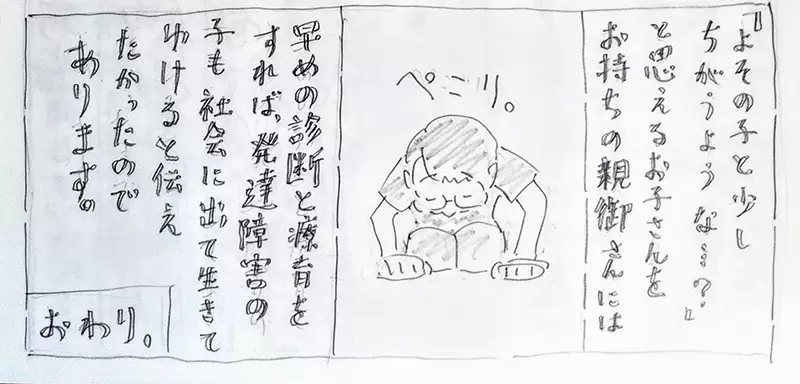 『よその子と少し
ちがうような…？』
と思えるお子さんを
お持ちの親御さんには
ぺこり。
早めの診断と療育を
すれば、発達障害の
子も社会に出て生きて
ゆけると伝え
たかったので
あります。
おわり。